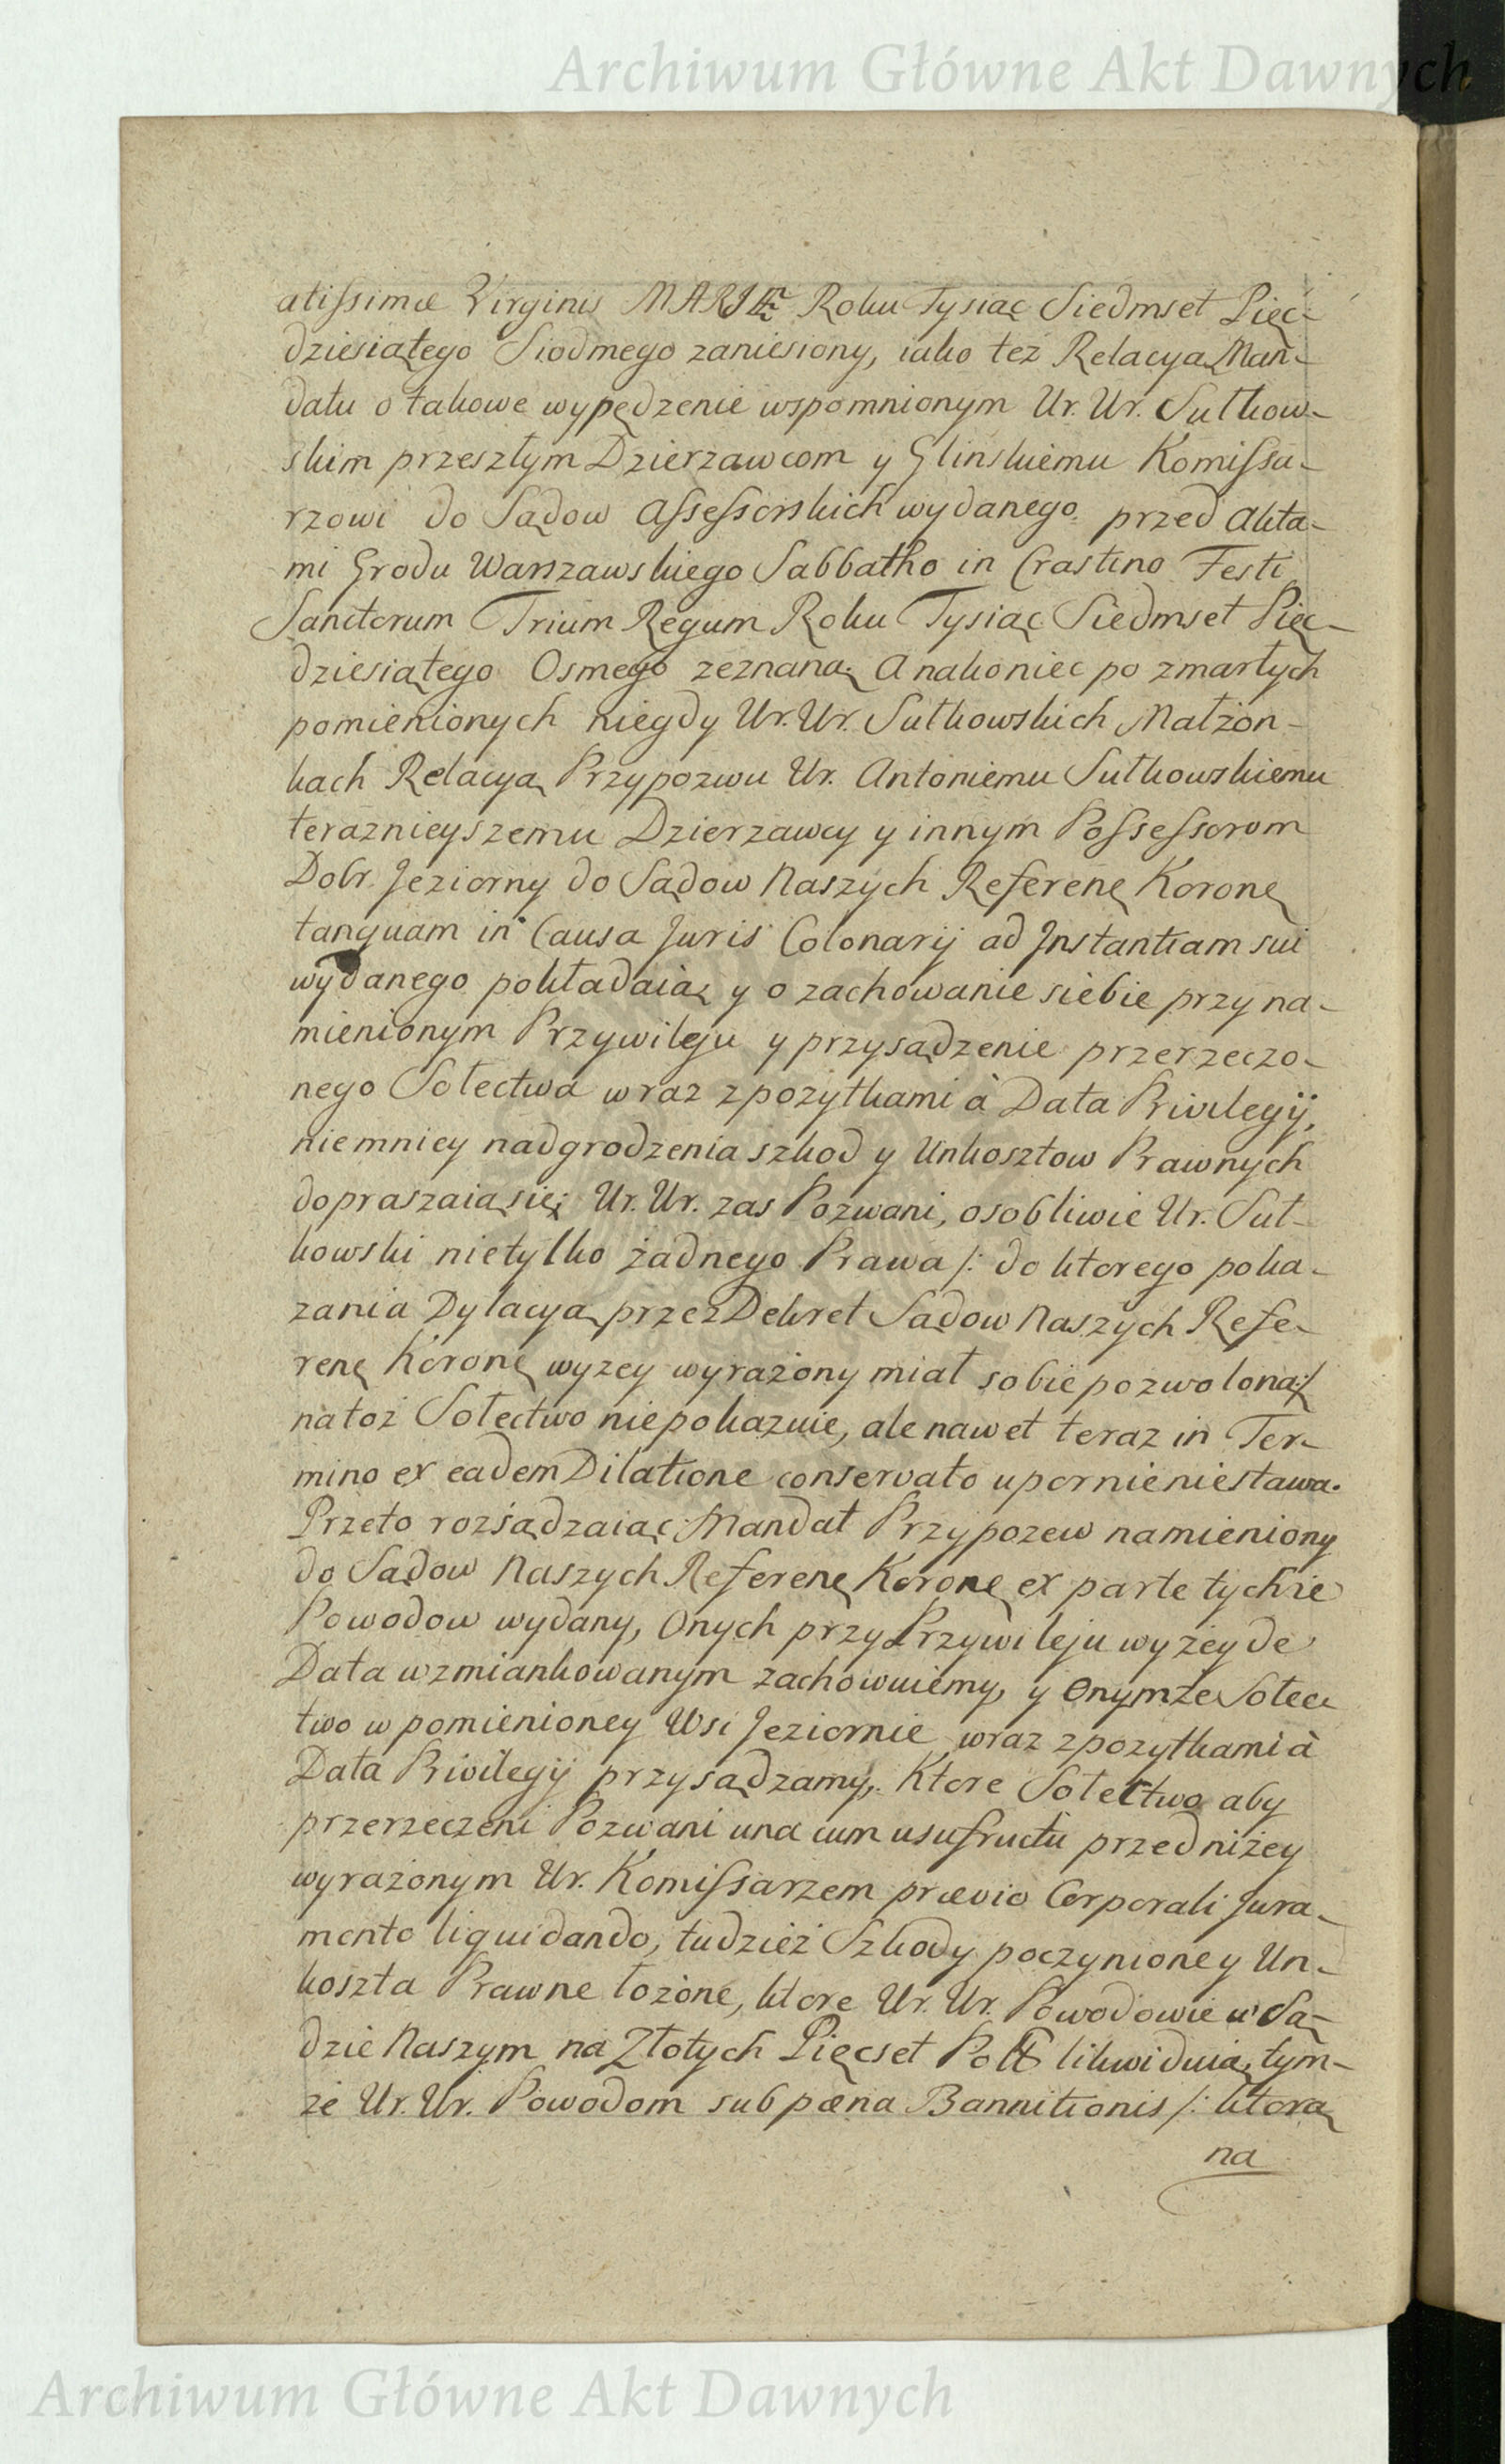 Archiwum Główne Akt Dawnych
atissimæ Virginis MARIÆ Roku Tysiąc Siedmset Pięć-
dziesiątego Siodmego zaniesiony, iako tez Relacyą Man-
datu o takowe wypędzenie wspomnionym Ur. Ur. Sutkow-
skim przeszłym Dzierzawcom y Glinskiemu Komissa-
rzowi do Sądow Assessorskich wydanego przed Akta-
mi Grodu Warszawskiego Sabbatho in Crastino Festi
Sanctorum Trium Regum Roku Tysiąc Siedmset Pięć-
dziesiątego Osmego zeznaną. A nakoniec po zmarłych
pomienionych niegdy Ur. Ur. Sutkowskich Małżon-
kach Relacyą Przypozwu Ur. Antoniemu Sutkowskiemu
teraznieyszemu Dzierzawcy y innym Possessorom
Dobr Jeziorny do Sądow Naszych Referenę Koronę
tanquam in Causa Juris Colonarij ad Instantiam sui
wydanego pokładaią, y o zachowanie siebie przy na-
mienionym Przywileju y przysądzenie przerzeczo-
nego Sołectwa wraz z pozytkami à Data Privilegij,
niemniey nadgrodzenia szkod y Unkosztow Prawnych
dopraszaią się; Ur. Ur. zas Pozwani, osobliwie Ur. Sut-
kowski nietylko żadnego Prawa /: do ktorego poka-
zania Dylacyą przez Dekret Sądow Naszych Refe-
renę Koronę wyzey wyrażony miał sobie pozwoloną :/
na toż Sołectwo niepokazuie, ale nawet teraz in Ter-
mino ex eadem Dilatione conservato upornie niestawa.
Przeto rozsądzaiąc Mandat Przypozew namieniony
do Sądow Naszych Referenę Koronę ex parte tychże
Powodow wydany, Onych przy Przywileju wyżey de
Data wzmiankowanym zachowuiemy, y Onymże Sołec
two w pomienioney Wsi Jeziornie wraz z pozytkami à
Data Privilegij przysądzamy, Ktore Sołectwo aby
przerzeczeni Pozwani una cum usufructu przed niżey
wyrażonym Ur. Komissarzem prævio Corporali Jura-
mento liquidando, tudzież Szkody poczynione y Un-
koszta Prawne łożone, ktore Ur. Ur. Powodowie w Są-
dzie Naszym na Złotych Pięcset Pol. likwiduią, tym-
że Ur. Ur. Powodom sub pæna Bannitionis /: ktorą
na
Archiwum Główne Akt Dawnych